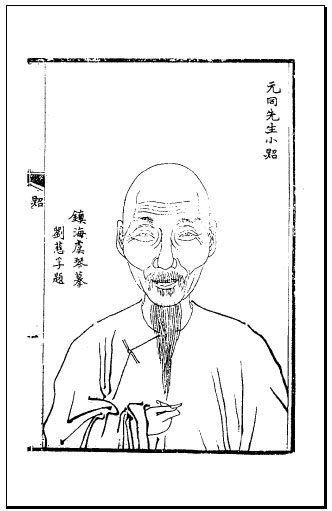 元同先生小炤
鎮海虞琴摹
劉慈孚題
炤